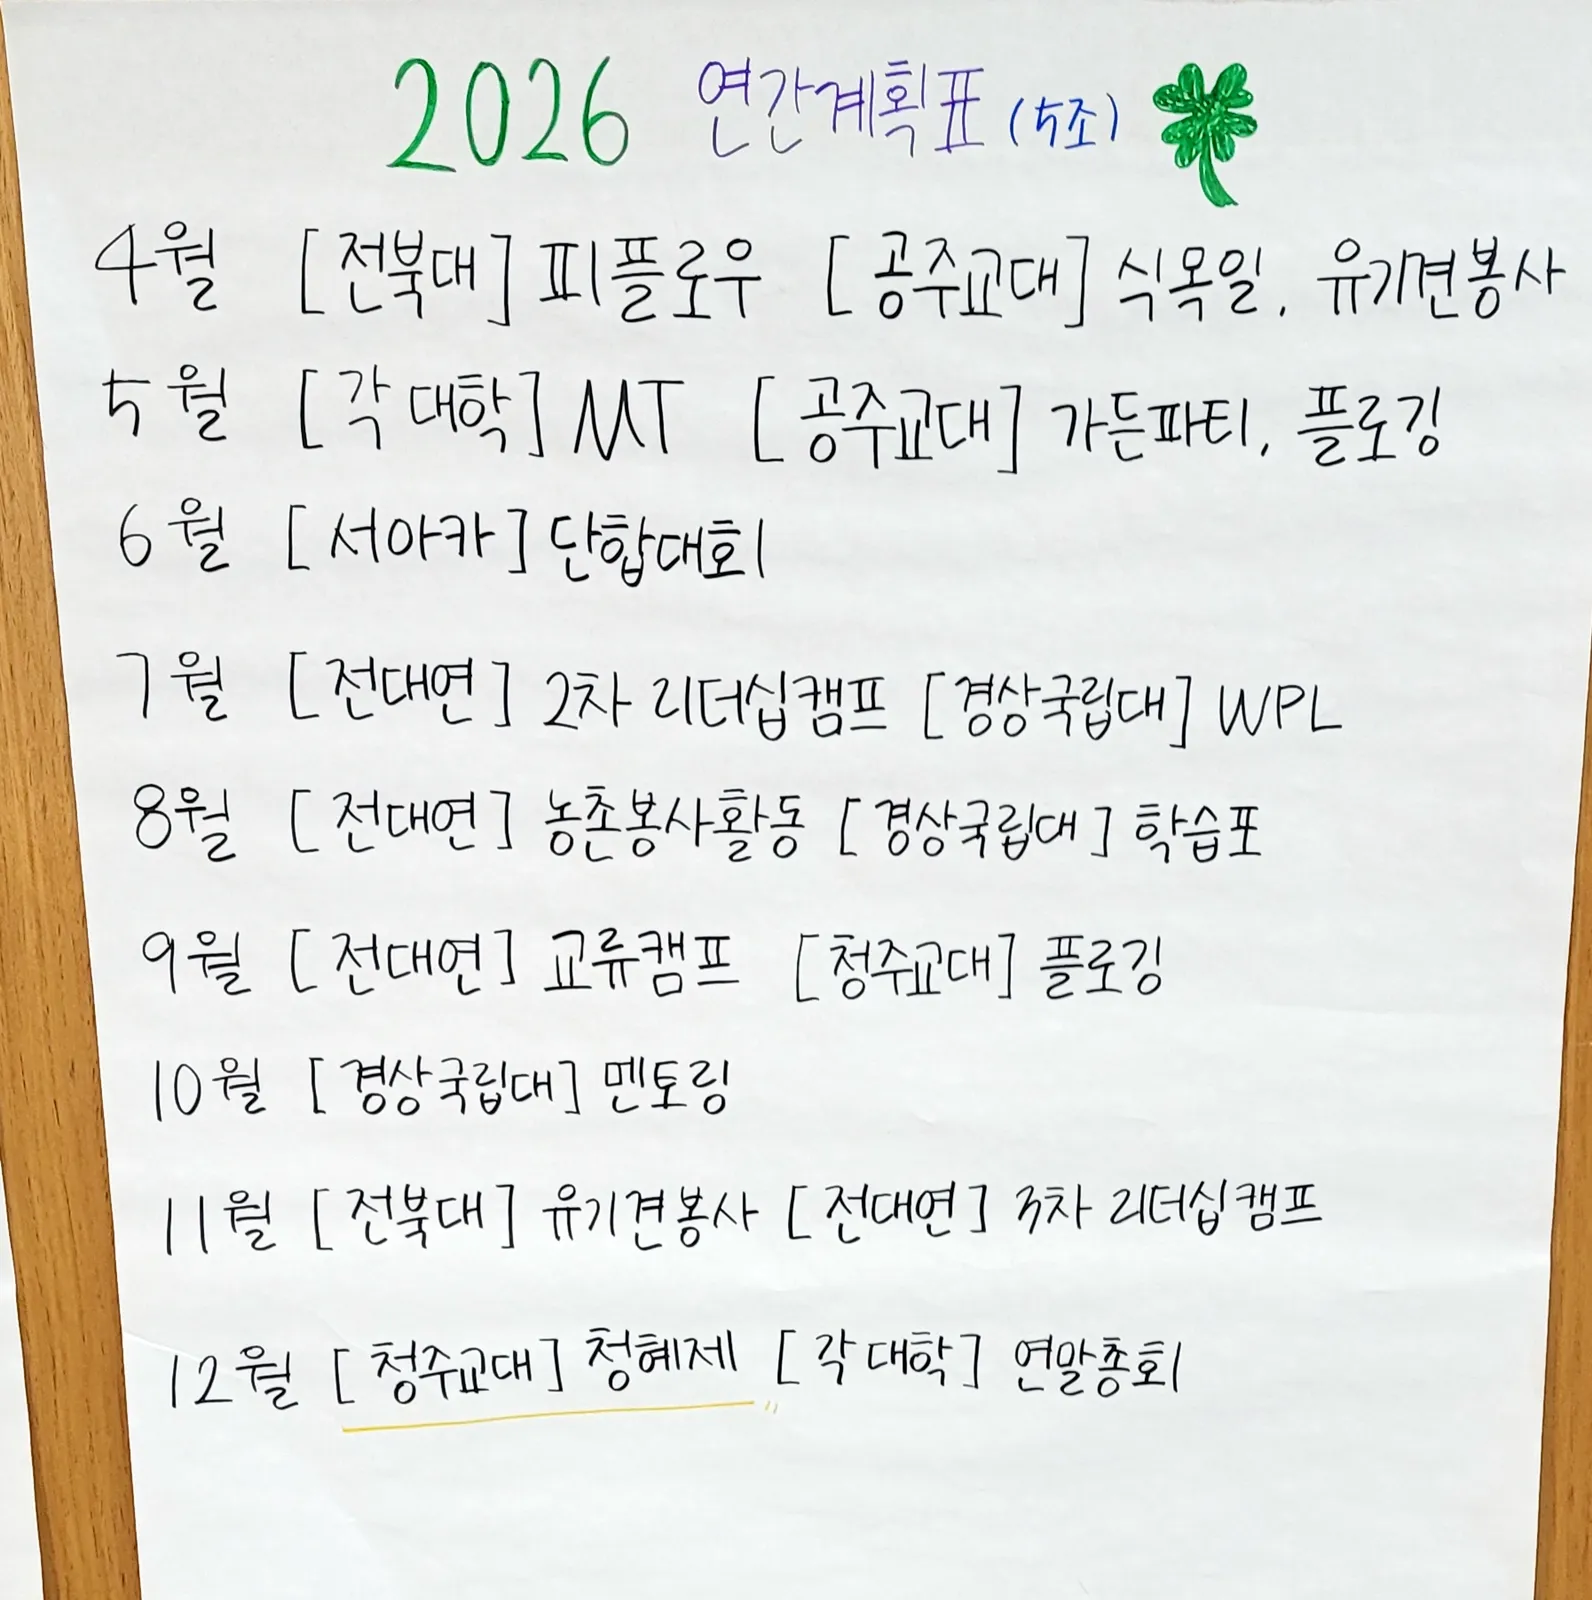 2026 연간계획표 (5조)
4월 [전북대] 피플로우 [공주교대] 식목일, 유기견봉사
5월 [각 대학] MT [공주교대] 가든파티, 플로깅
6월 [서아카] 단합대회
7월 [전대연] 2차 리더십캠프 [경상국립대] WPL
8월 [전대연] 농촌봉사활동 [경상국립대] 학습포
9월 [전대연] 교류캠프 [청주교대] 플로깅
10월 [경상국립대] 멘토링
11월 [전북대] 유기견봉사 [전대연] 3차 리더십캠프
12월 [청주교대] 청혜제 [각 대학] 연말총회